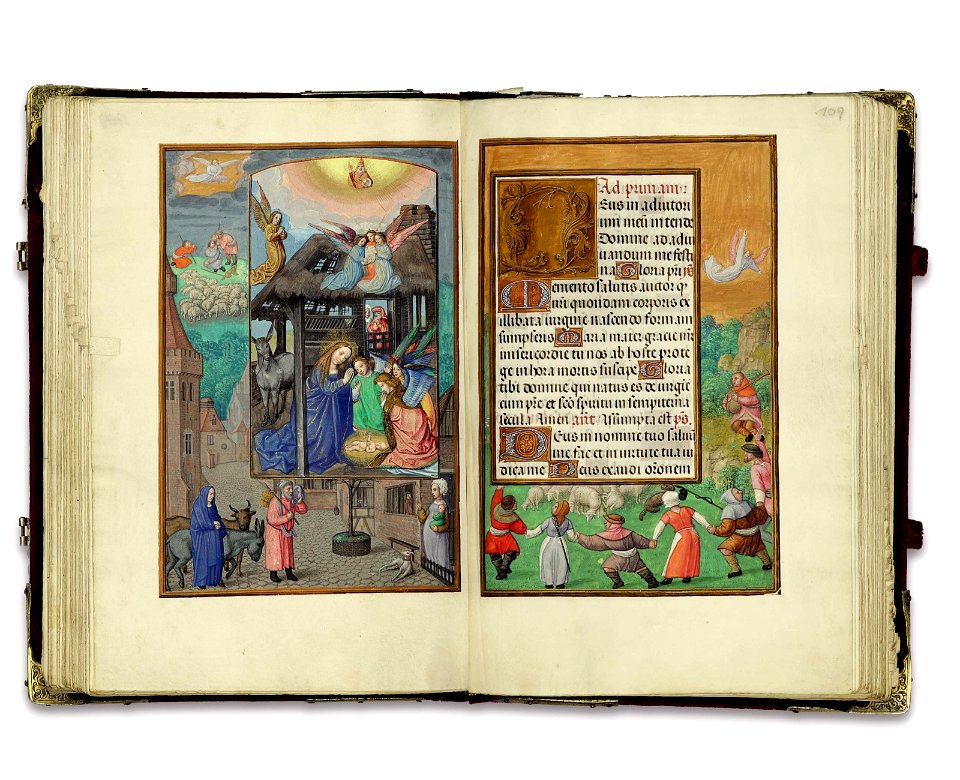 109
Ad primam:
Deus in adiutor
ium meū intende
Domine ad adiu
uandum me festi
na Gloria pr̄i ps̄
Memento salutis auctor q
nr̄i quondam corporis ex
illibata uirgine nascendo formam
sumpseris Maria mater gracie m̄r
misericordie tu nos ab hoste prote
ge in hora mortis suscipe Gloria
tibi domine qui natus es de uirgīe
cum pr̄e et sc̄o spiritu in sempiterna
secula Amen ant̄ Assumpta est ps̄
Deus in nomine tuo saluū
me fac et in uirtute tua iu
dica me Deus exaudi or̄onem